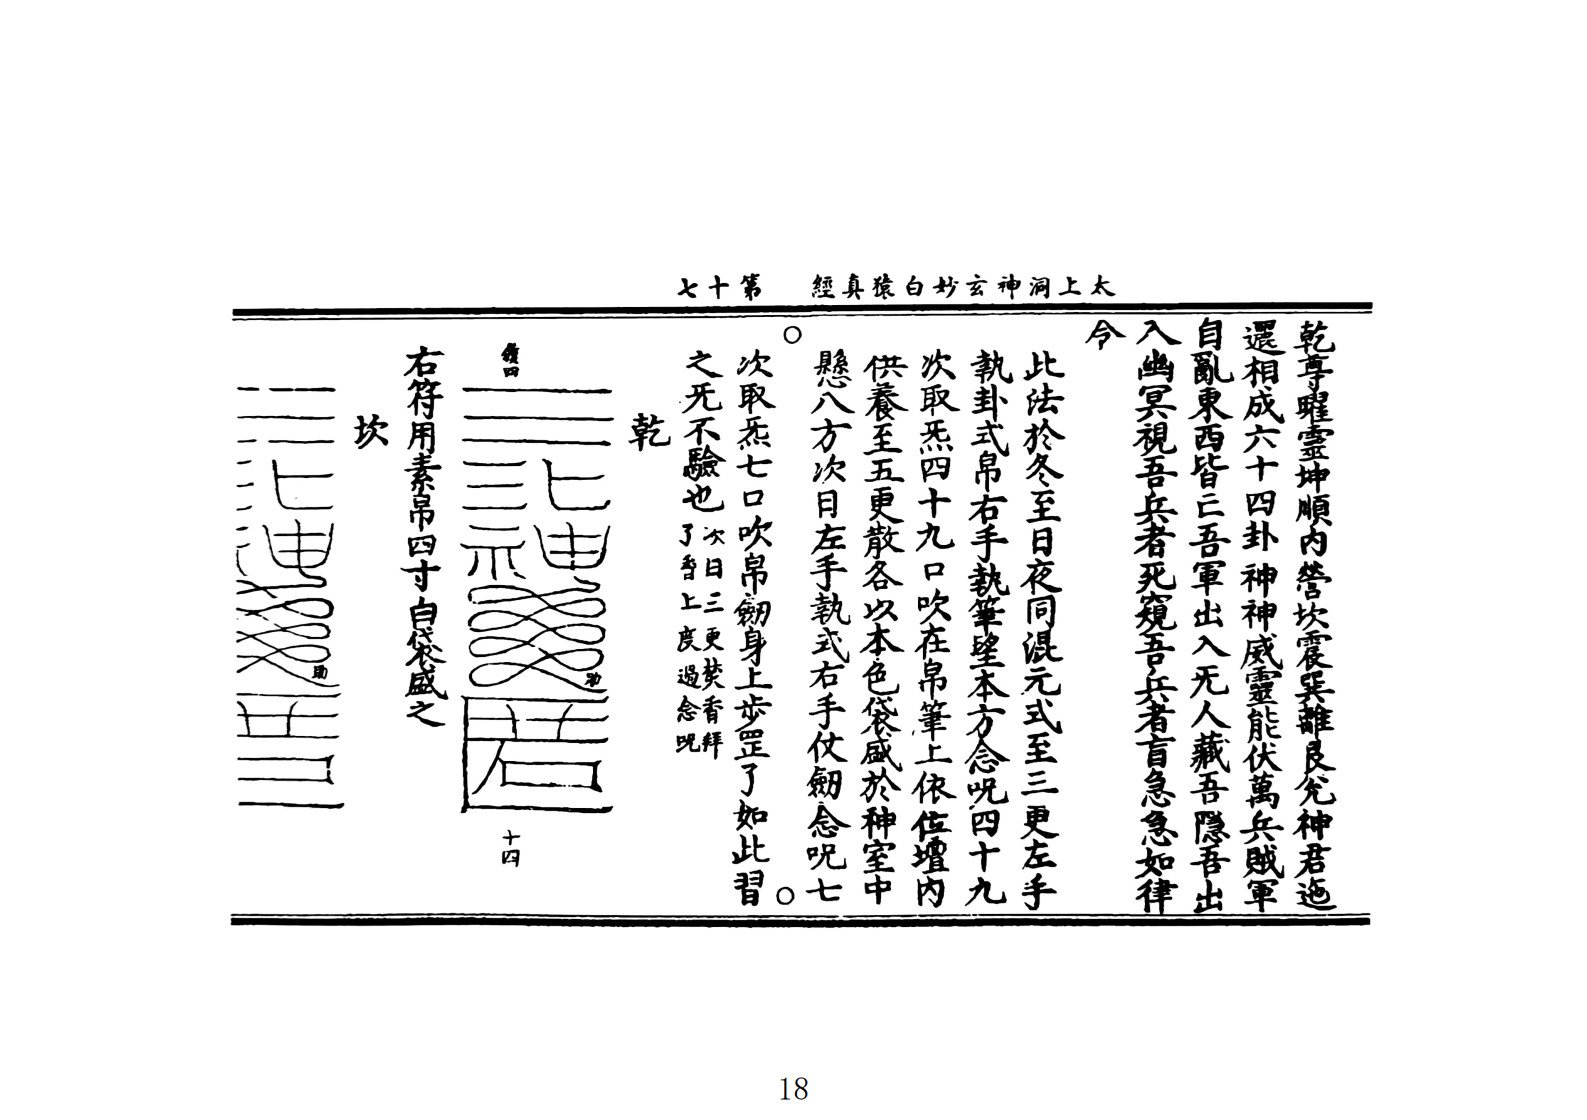 太上洞神玄妙白猿真經　第十七
乾尊曜靈坤順內營坎震巽離艮兌神君迤
還相成六十四卦神神威靈能伏萬兵賊軍
自亂東西皆亡吾軍出入旡人藏吾隱吾出
入幽冥視吾兵者死窺吾兵者盲急急如律
令
此法於冬至日夜同混元式至三更左手
執卦式帛右手執筆望本方念呪四十九
次取炁四十九口吹在帛筆上依位壇內
供養至五更散各以本色袋盛於神室中
懸八方次日左手執式右手仗劒念呪七
次取炁七口吹帛劒身上步罡了如此習
之旡不驗也次日三更焚香拜
了
上度過念呪
乾
十四
右符用素帛四寸白袋盛之
坎
18